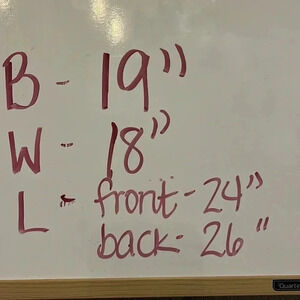 B - 19"
W - 18"
L - front - 24"
back - 26"
Quartet